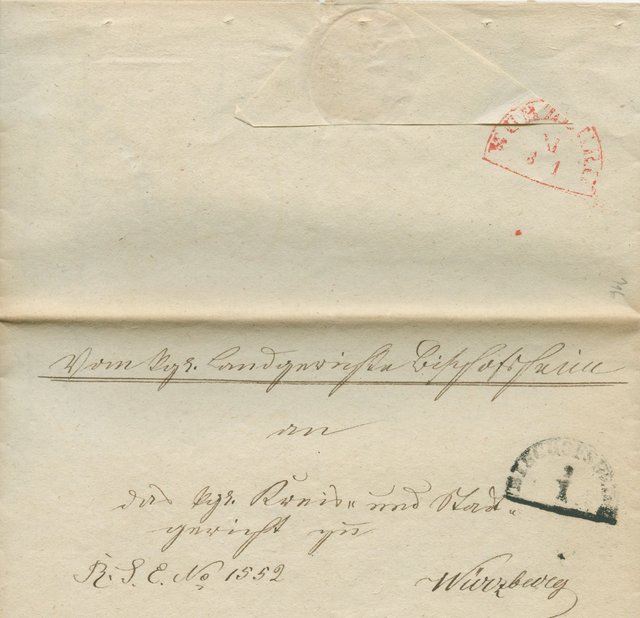 WÜRZBURG
Vom kgr. Landgerichte Bischofsheim
an
BISCHOFSHEIM
das kgr. Kreis- und Stadt-
gericht zu
R. S. E. No 1552
Würzburg